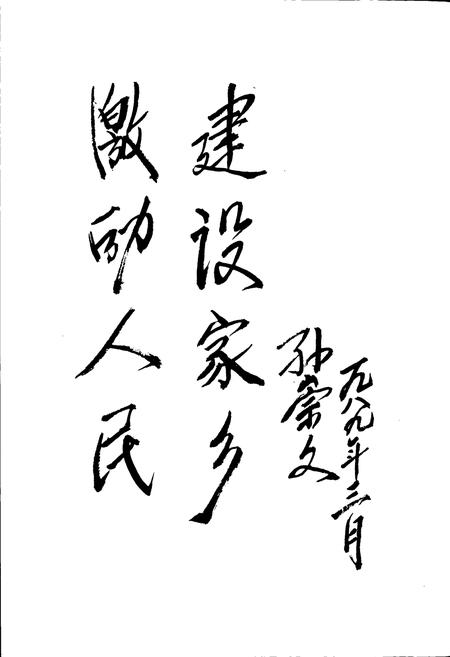 激励人民
建设家乡
孙崇文
一九八九年三月